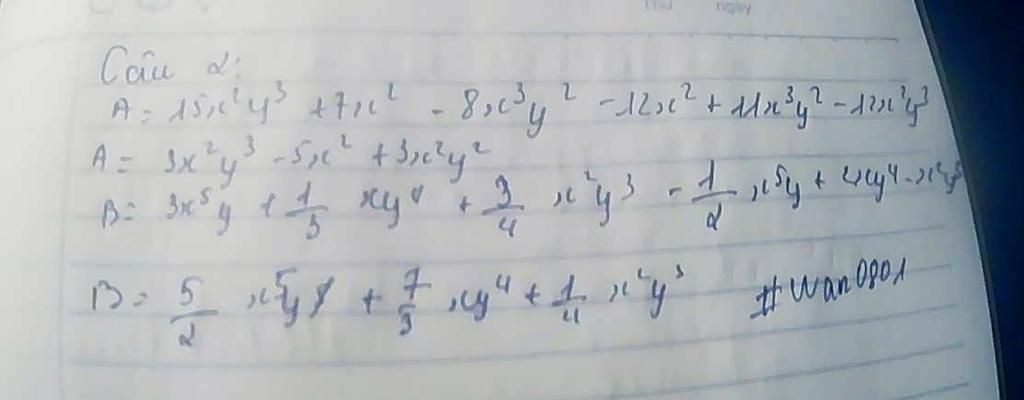 Thứ ngày
Câu 2:
A = 15x²y³ + 7x² - 8x³y² - 12x² + 11x³y² - 12x²y³
A = 3x²y³ - 5x² + 3x²y²
B = 3x⁵y + 1/3 xy⁴ + 3/4 x²y³ - 1/2 x⁵y + 2xy⁴ - x²y³
B = 5/2 x⁵y + 7/3 xy⁴ + 1/4 x²y³ #Wan0801